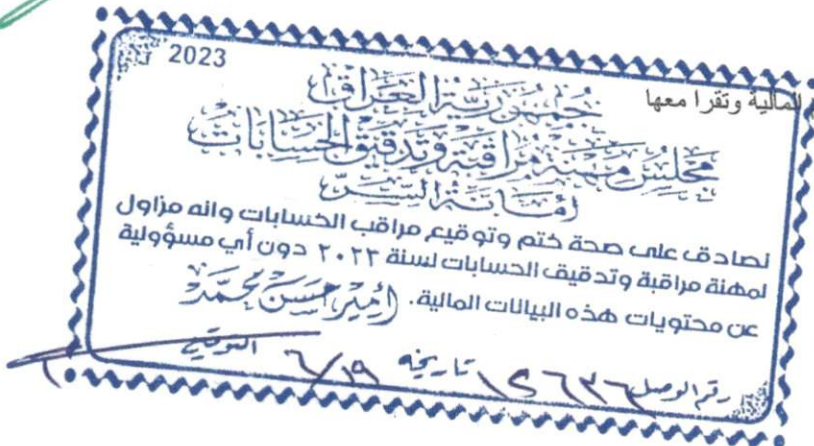 2023
المالية وتقرا معها
جمهورية العراق
مجلس مهنة مراقبة وتدقيق الحسابات
أمانة السر
نصادق على صحة ختم وتوقيع مراقب الحسابات وانه مزاول
لمهنة مراقبة وتدقيق الحسابات لسنة ٢٠٢٢ دون أي مسؤولية
عن محتويات هذه البيانات المالية. أمير حسن محمد
التوقيع
رقم الوصل تاريخه ٦/١٩